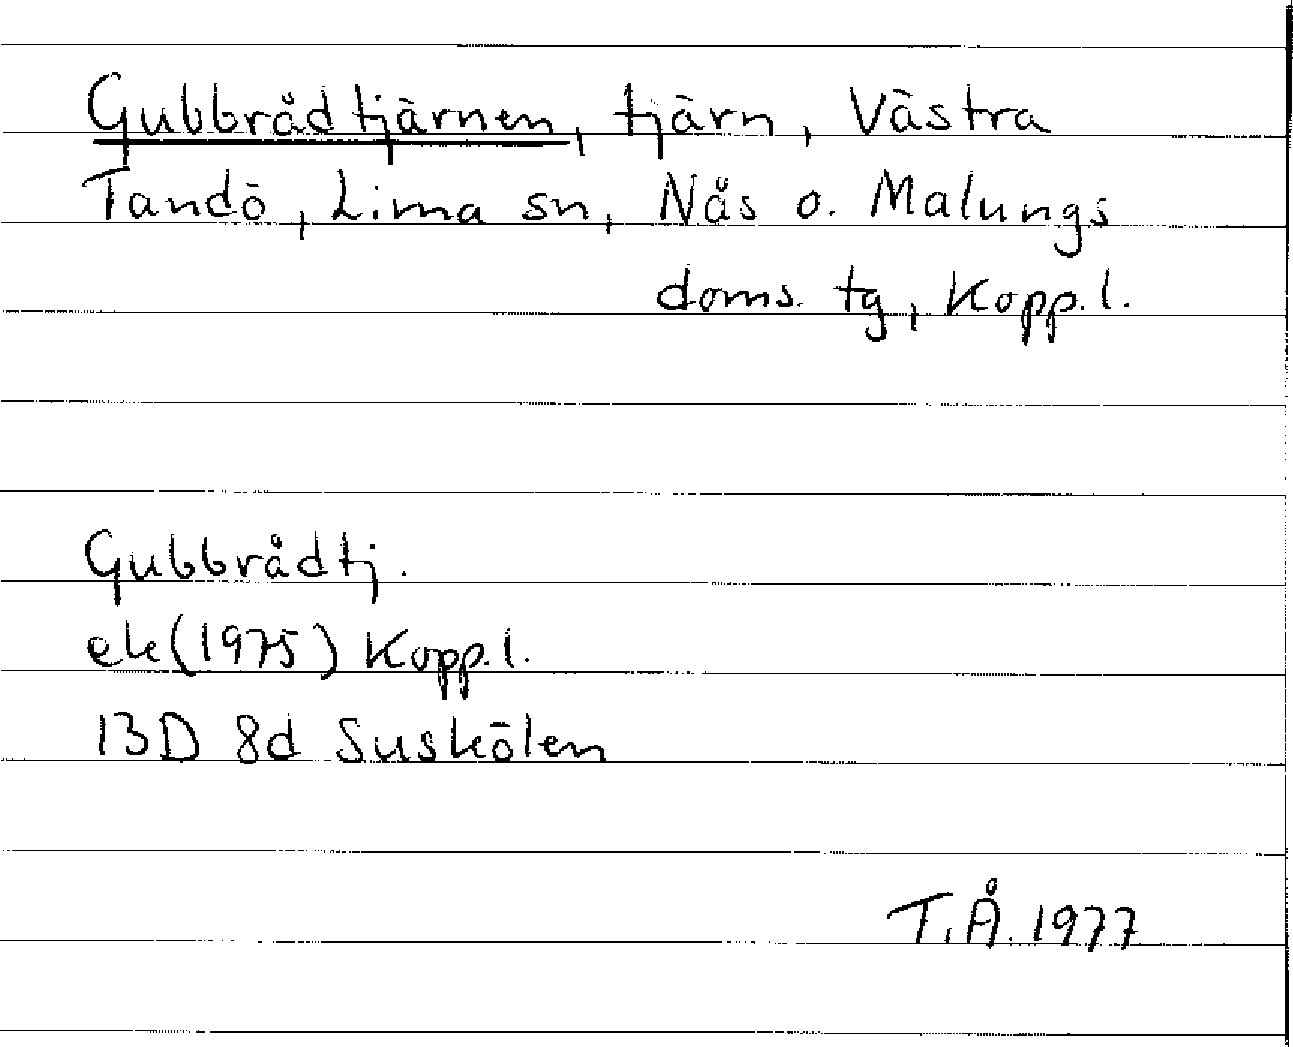 Gubbrådtjärnen, tjärn, Västra
Tandö, Lima sn, Nås o. Malungs
doms. tg, Kopp. l.
Gubbrådtj.
ek (1975) Kopp. l.
13D 8d Suskölen
T.Å. 1977